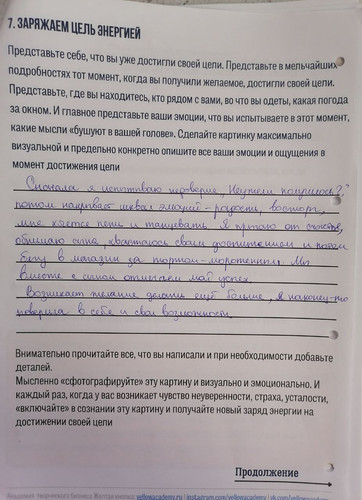 7. ЗАРЯЖАЕМ ЦЕЛЬ ЭНЕРГИЕЙ
Представьте себе, что вы уже достигли своей цели. Представьте в мельчайших
подробностях тот момент, когда вы получили желаемое, достигли своей цели.
Представьте, где вы находитесь, кто рядом с вами, во что вы одеты, какая погода
за окном. И главное представьте ваши эмоции, что вы испытываете в этот момент,
какие мысли «бушуют в вашей голове». Сделайте картинку максимально
визуальной и предельно конкретно опишите все ваши эмоции и ощущения в
момент достижения цели
Сначала я испытываю неверие. Неужели получилось?,
потом накрывает шквал эмоций - радость, восторг,
мне хочется петь и танцевать. Я прыгаю от счастья,
обнимаю сына, хвастаюсь своим достижением и потом
бегу в магазин за тортом-мороженным. Мы
вместе с сыном отмечаем мой успех.
Возникает желание делать ещё больше. Я наконец-то
поверила в себя и свои возможности.
Внимательно прочитайте все, что вы написали и при необходимости добавьте
деталей.
Мысленно «сфотографируйте» эту картину и визуально и эмоционально. И
каждый раз, когда у вас возникает чувство неуверенности, страха, усталости,
«включайте» в сознании эту картину и получайте новый заряд энергии на
достижении своей цели
Продолжение
Академия творческого бизнеса Желтая кнопка: yellowacademy.ru | instagram.com/yellowacademy | vk.com/yellowacademy